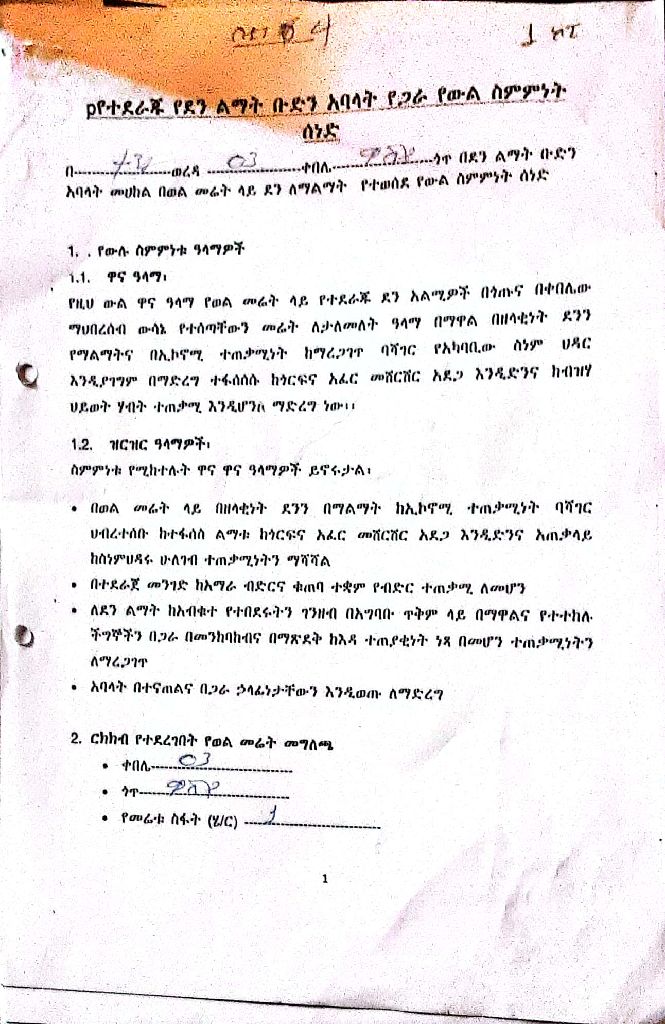 pየተደራጁ የደን ልማት ቡድን አባላት የጋራ የውል ስምምነት
ሰነድ
በ---------------ወረዳ ---------------ቀበሌ---------------ጎጥ በደን ልማት ቡድን
አባላት መሀከል በወል መሬት ላይ ደን ለማልማት የተወሰደ የውል ስምምነት ሰነድ
1. . የውሉ ስምምነቱ ዓላማዎች
1.1. ዋና ዓላማ፡
የዚህ ውል ዋና ዓላማ የወል መሬት ላይ የተደራጁ ደን አልሚዎች በጎጡና በቀበሌው
ማህበረሰብ ውሳኔ የተሰጣቸውን መሬት ለታለመለት ዓላማ በማዋል በዘላቂነት ደንን
የማልማትና በኢኮኖሚ ተጠቃሚነት ከማረጋገጥ ባሻገር የአካባቢው ስነም ህዳር
እንዲያገግም በማድረግ ተፋሰሰሱ ከጎርፍና አፈር መሸርሸር አደጋ እንዲድንና ከብዝሃ
ህይወት ሃብት ተጠቃሚ እንዲሆን ማድረግ ነው፡፡
1.2. ዝርዝር ዓላማዎች፡
ስምምነቱ የሚከተሉት ዋና ዋና ዓላማዎች ይኖሩታል፡
• በወል መሬት ላይ በዘላቂነት ደንን በማልማት ከኢኮኖሚ ተጠቃሚነት ባሻገር
ህብረተሰቡ ከተፋሰስ ልማቱ ከጎርፍና አፈር መሸርሸር አደጋ እንዲድንና አጠቃላይ
ከስነምህዳሩ ሁለገብ ተጠቃሚነትን ማሻሻል
• በተደራጀ መንገድ ከአማራ ብድርና ቁጠባ ተቋም የብድር ተጠቃሚ ለመሆን
• ለደን ልማት ከአብቁተ የተበደሩትን ገንዘብ በአግባቡ ጥቅም ላይ በማዋልና የተተከሉ
ችግኞችን በጋራ በመንከባከብና በማጽደቅ ከእዳ ተጠያቂነት ነጻ በመሆን ተጠቃሚነትን
ለማረጋገጥ
• አባላት በተናጠልና በጋራ ኃላፊነታቸውን እንዲወጡ ለማድረግ
2. ርክክብ የተደረገበት የወል መሬት መግለጫ
• ቀበሌ--- 03 ---------------
• ጎጥ---------------
• የመሬቱ ስፋት (ሄ/ር) --- 1 ---------------
1